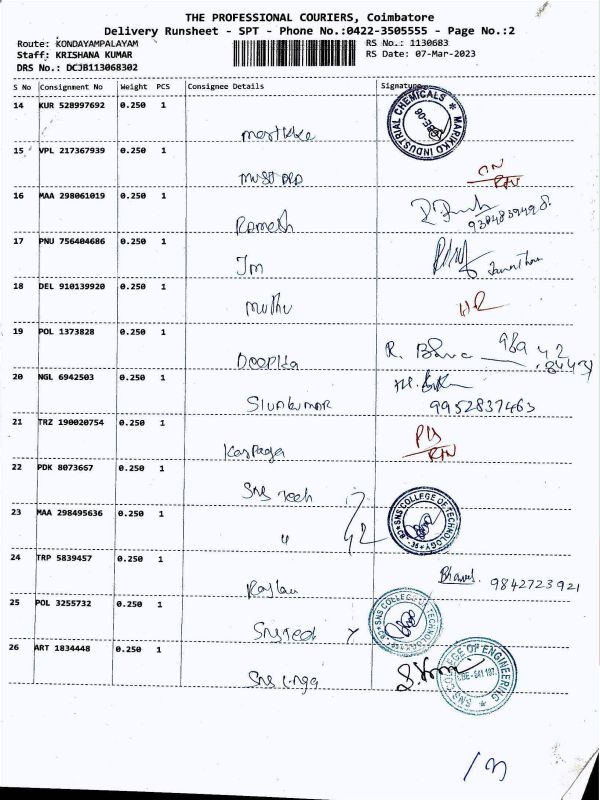 THE PROFESSIONAL COURIERS, Coimbatore
Delivery Runsheet - SPT - Phone No.:0422-3505555 - Page No.:2
Route: KONDAYAMPALAYAM RS No.: 1130683
Staff: KRISHANA KUMAR RS Date: 07-Mar-2023
DRS No.: DCJB113068302
S No Consignment No Weight PCS Consignee Details Signature
14 KUR 528997692 0.250 1
MARIKKO INDUSTRIAL CHEMICALS
15 VPL 217367939 0.250 1
16 MAA 298061019 0.250 1
Ramesh 9384839498
17 PNU 756404686 0.250 1
Jm
18 DEL 910139920 0.250 1
Muthu
19 POL 1373828 0.250 1
Deepika
20 NGL 6942503 0.250 1
Sivakumar 9952837463
21 TRZ 190020754 0.250 1
22 PDK 8073667 0.250 1
Sns Tech
23 MAA 298495636 0.250 1
" 42
SNS COLLEGE OF TECHNOLOGY
24 TRP 5839457 0.250 1
9842723921
25 POL 3255732 0.250 1
SNS COLLEGE OF TECHNOLOGY
26 ART 1834448 0.250 1
SNS COLLEGE OF ENGINEERING